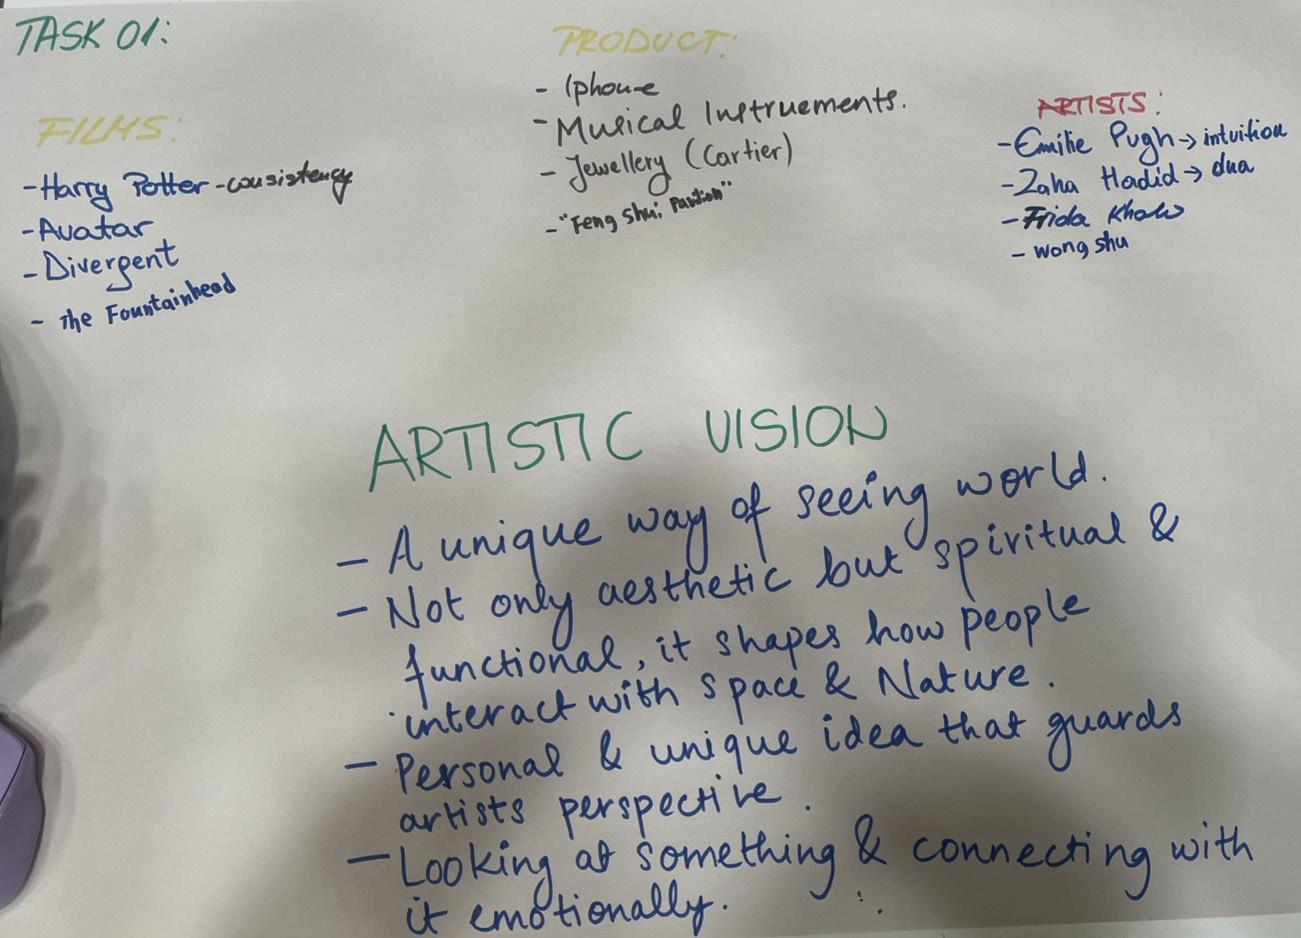 TASK 01:
FILMS:
- Harry Potter - consistency
- Avatar
- Divergent
- The Fountainhead
PRODUCT:
- Iphone
- Musical Instruements.
- Jewellery (Cartier)
- "Feng Shui
ARTISTS:
- Emilie Pugh → intuition
- Zaha Hadid → dna
- Frida Khalo
- wong shu
ARTISTIC VISION
- A unique way of seeing world.
- Not only aesthetic but spiritual &
functional, it shapes how people
interact with space & Nature.
- Personal & unique idea that guards
artists perspective.
- Looking at something & connecting with
it emotionally.